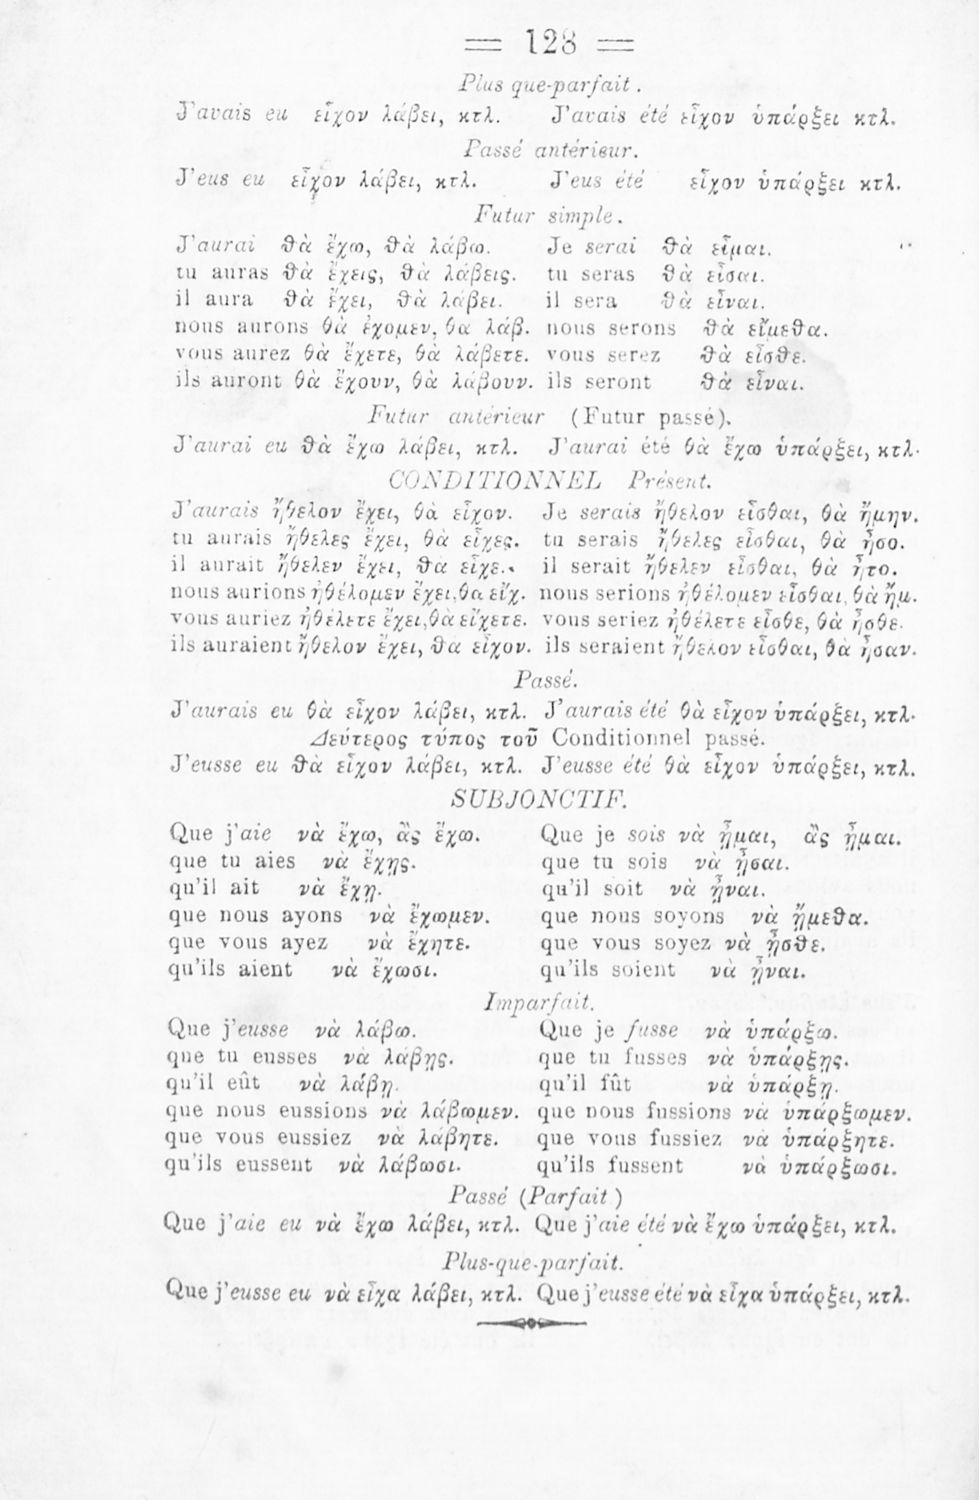 = 128 =
Plus que-parfait.
J'avais eu εἶχον λάβει, κτλ. J'avais été εἶχον ὑπάρξει κτλ.
Passé antérieur.
J'eus eu εἶχον λάβει, κτλ. J'eus été εἶχον ὑπάρξει κτλ.
Futur simple.
J'aurai θὰ ἔχω, θὰ λάβω. Je serai θὰ εἶμαι.
tu auras θὰ ἔχεις, θὰ λάβεις. tu seras θὰ εἶσαι.
il aura θὰ ἔχει, θὰ λάβει. il sera θὰ εἶναι.
nous aurons θὰ ἔχομεν, θα λάβ. nous serons θὰ εἴμεθα.
vous aurez θὰ ἔχετε, θὰ λάβετε. vous serez θὰ εἶσθε.
ils auront θὰ ἔχουν, θὰ λάβουν. ils seront θὰ εἶναι.
Futur antérieur (Futur passé).
J'aurai eu θὰ ἔχω λάβει, κτλ. J'aurai été θὰ ἔχω ὑπάρξει, κτλ.
CONDITIONNEL Présent.
J'aurais ἤθελον ἔχει, θὰ εἶχον. Je serais ἤθελον εἶσθαι, θὰ ἤμην.
tu aurais ἤθελες ἔχει, θὰ εἶχες. tu serais ἤθελες εἶσθαι, θὰ ἦσο.
il aurait ἤθελεν ἔχει, θὰ εἶχε. il serait ἤθελεν εἶσθαι, θὰ ἦτο.
nous aurions ἠθέλομεν ἔχει, θα εἴχ. nous serions ἠθέλομεν εἶσθαι, θὰ ἤμ.
vous auriez ἠθέλετε ἔχει, θὰ εἴχετε. vous seriez ἠθέλετε εἶσθε, θὰ ἦσθε.
ils auraient ἤθελον ἔχει, θα εἶχον. ils seraient ἤθελον εἶσθαι, θὰ ἦσαν.
Passé.
J'aurais eu θὰ εἶχον λάβει, κτλ. J'aurais été θὰ εἶχον ὑπάρξει, κτλ.
Δεύτερος τύπος τοῦ Conditionnel passé.
J'eusse eu θὰ εἶχον λάβει, κτλ. J'eusse été θὰ εἶχον ὑπάρξει, κτλ.
SUBJONCTIF.
Que j'aie νὰ ἔχω, ἂς ἔχω. Que je sois νὰ ἦμαι, ἂς ἦμαι.
que tu aies νὰ ἔχῃς. que tu sois νὰ ἦσαι.
qu'il ait νὰ ἔχῃ. qu'il soit νὰ ᾖναι.
que nous ayons νὰ ἔχωμεν. que nous soyons νὰ ἤμεθα.
que vous ayez νὰ ἔχητε. que vous soyez νὰ ἦσθε.
qu'ils aient νὰ ἔχωσι. qu'ils soient νὰ ᾖναι.
Imparfait.
Que j'eusse νὰ λάβω. Que je fusse νὰ ὑπάρξω.
que tu eusses νὰ λάβῃς. que tu fusses νὰ ὑπάρξῃς.
qu'il eût νὰ λάβῃ. qu'il fût νὰ ὑπάρξῃ.
que nous eussions νὰ λάβωμεν. que nous fussions νὰ ὑπάρξωμεν.
que vous eussiez νὰ λάβητε. que vous fussiez νὰ ὑπάρξητε.
qu'ils eussent νὰ λάβωσι. qu'ils fussent νὰ ὑπάρξωσι.
Passé (Parfait)
Que j'aie eu νὰ ἔχω λάβει, κτλ. Que j'aie été νὰ ἔχω ὑπάρξει, κτλ.
Plus-que-parfait.
Que j'eusse eu νὰ εἶχα λάβει, κτλ. Que j'eusse été νὰ εἶχα ὑπάρξει, κτλ.